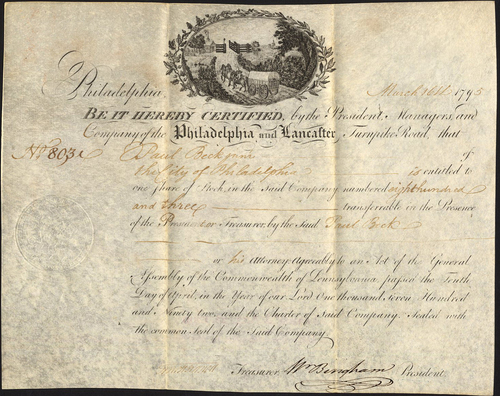 Philadelphia, March 16th 1795
BE IT HEREBY CERTIFIED, by the President, Managers, and
Company of the Philadelphia and Lancaster Turnpike Road, that
No 803 Paul Beck junr of
the City of Philadelphia is entitled to
one Share of Stock, in the Said Company numbered eight hundred
and three transferable in the Presence
of the President or Treasurer, by the Said Paul Beck
or his Attorney Agreeably to an Act of the General
Assembly of the Commonwealth of Pennsylvania passed the Ninth
Day of April, in the Year of our Lord One thousand, Seven Hundred
and Ninety two, and the Charter of Said Company. Sealed with
the common Seal of the Said Company.
Treasurer. Wm Bingham President.